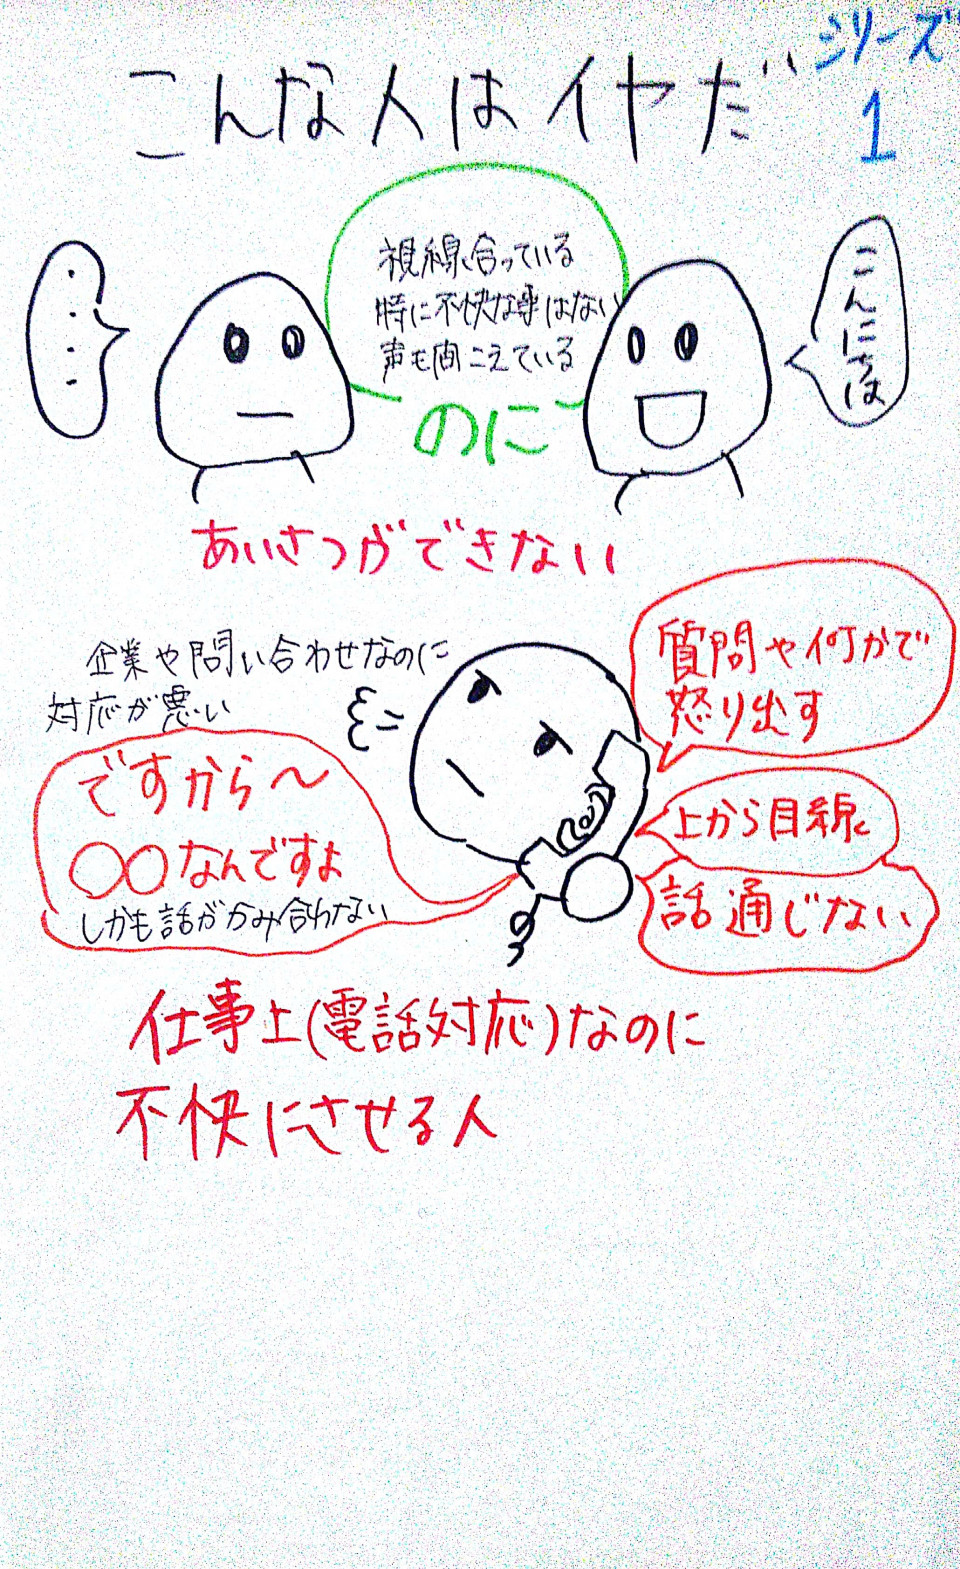 こんな人はイヤだ
シリーズ
1
・・・・
視線合っている
時に不快な事はない
声も聞こえている
のに
こんにちは
あいさつができない
企業や問い合わせなのに
対応が悪い
ですから〜
〇〇なんですよ
しかも話がかみ合わない
質問や何かで
怒り出す
上から目線
話通じない
仕事上(電話対応)なのに
不快にさせる人